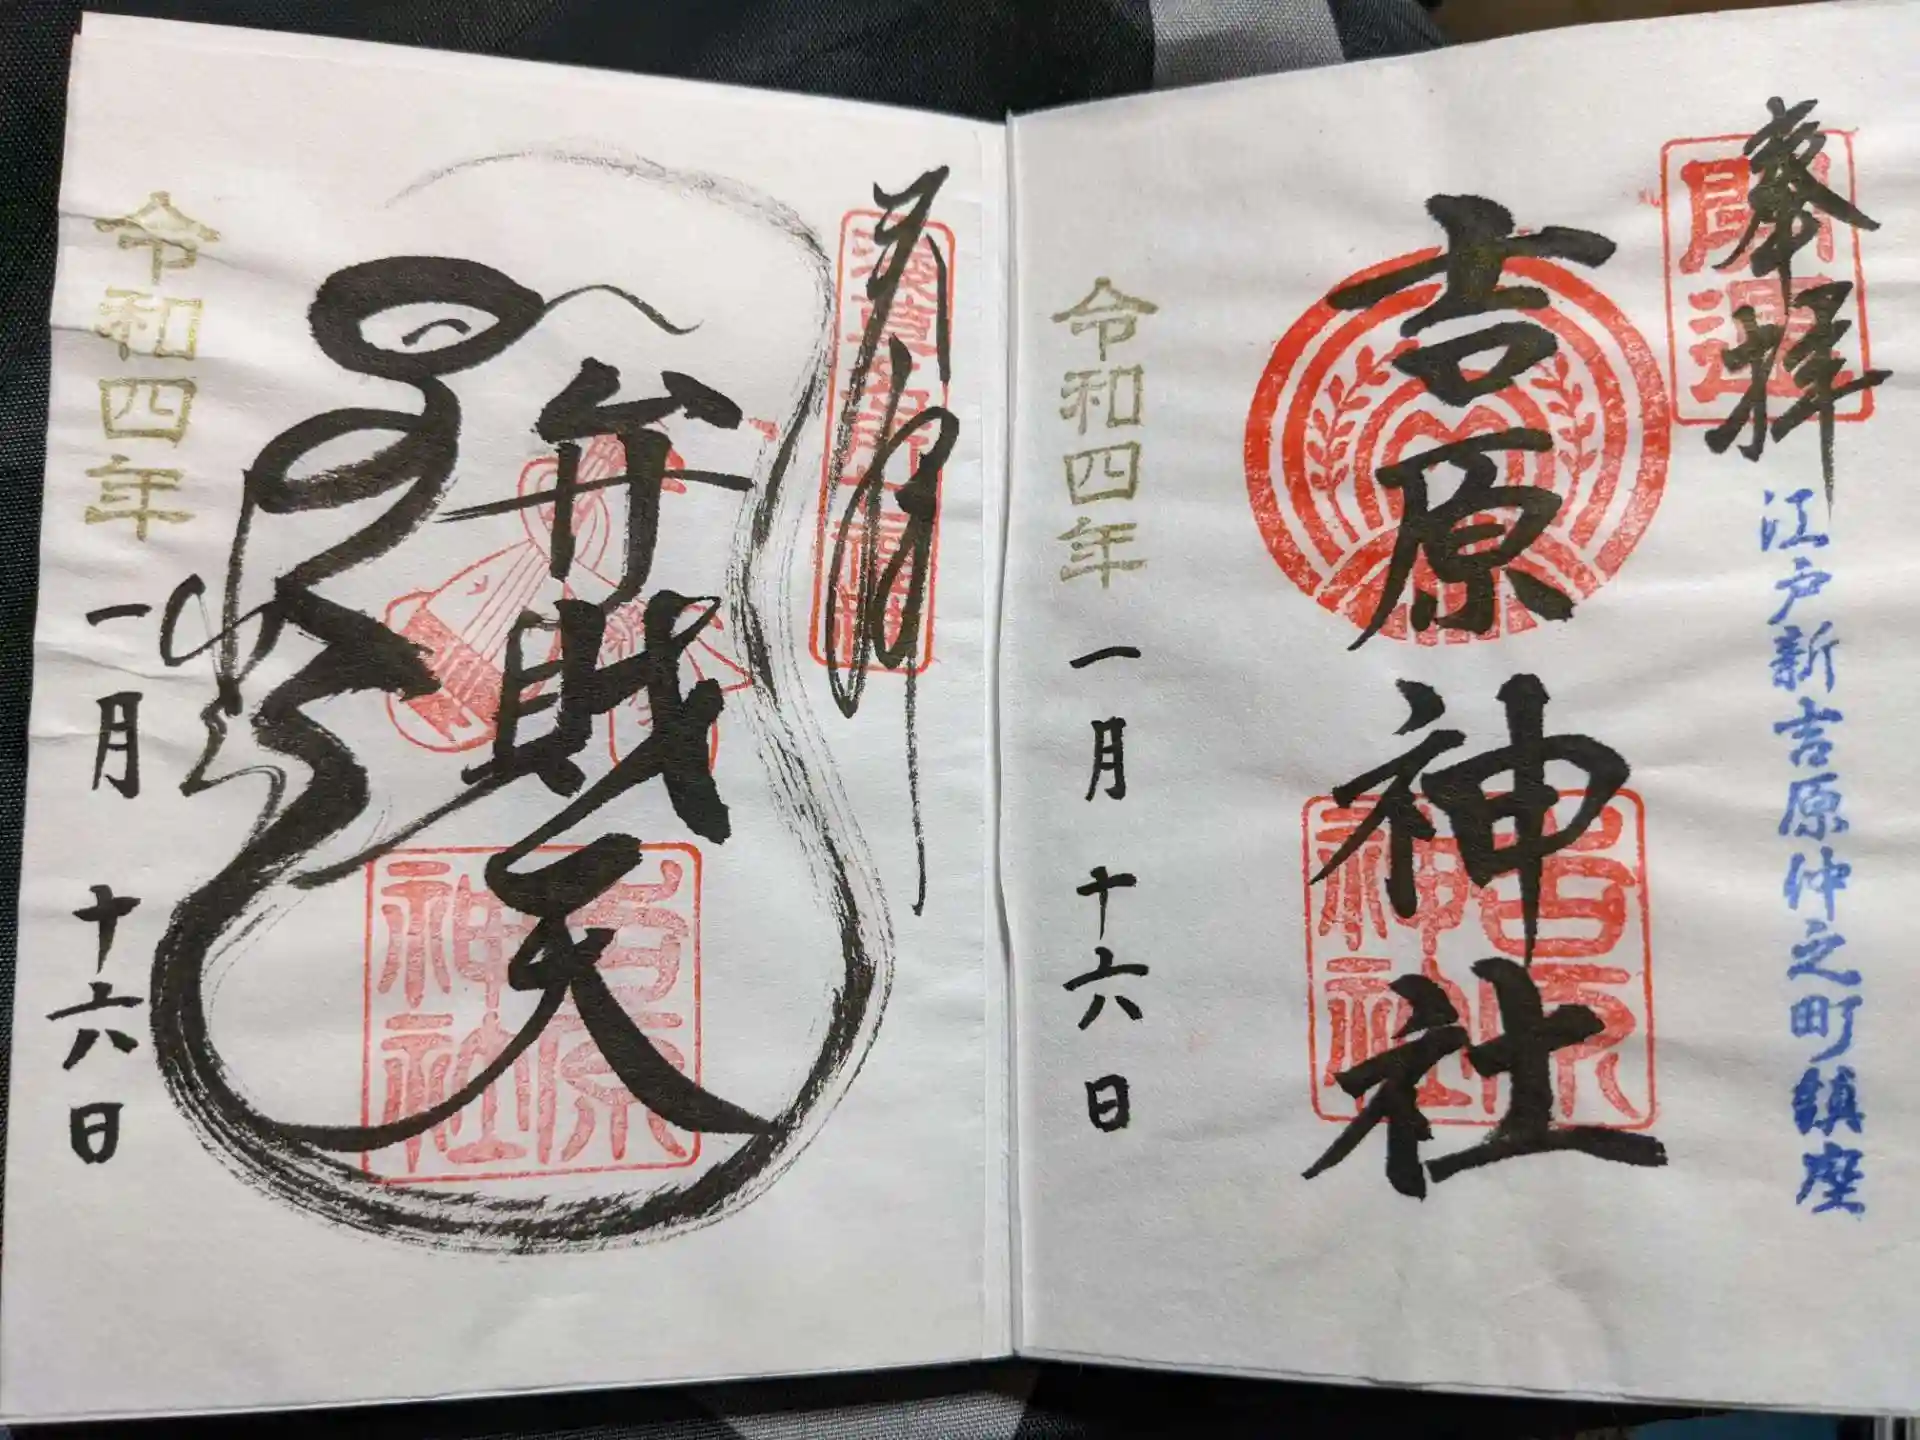 奉拝
開運
江戸新吉原仲之町鎮座
吉原神社
吉原神社
令和四年
一月
十六日
弁財天
吉原神社
令和四年
一月
十六日